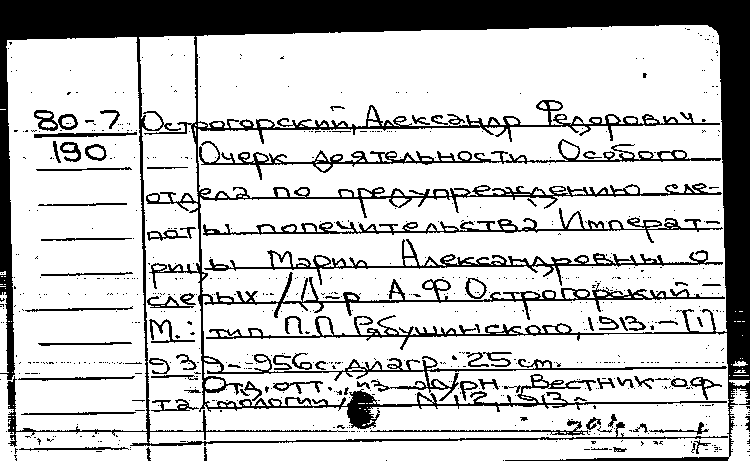 80-7 Острогорский, Александр Федорович.
190 Очерк деятельности Особого
отдела по предупреждению сле-
поты попечительства Императ-
рицы Марии Александровны о
слепых / Д-р А.Ф. Острогорский. -
М.: тип. П.П. Рябушинского, 1913. - [1]
939-956 с., диагр.; 25 см.
Отд. отт. из журн. "Вестник оф-
тальмологии", N 12, 1913 г.